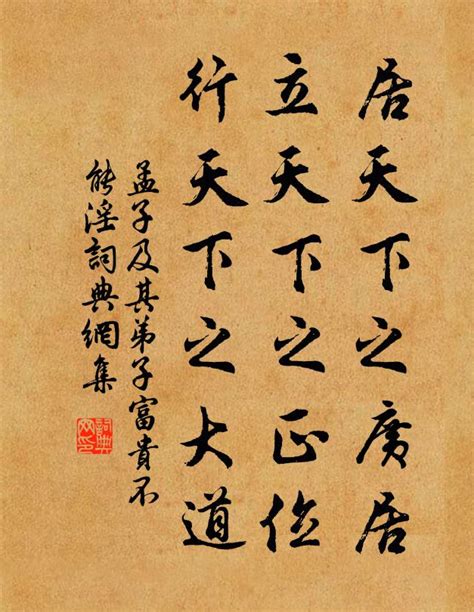 居天下之廣居
立天下之正位
行天下之大道
孟子及其弟子富貴不
能淫詞典網集